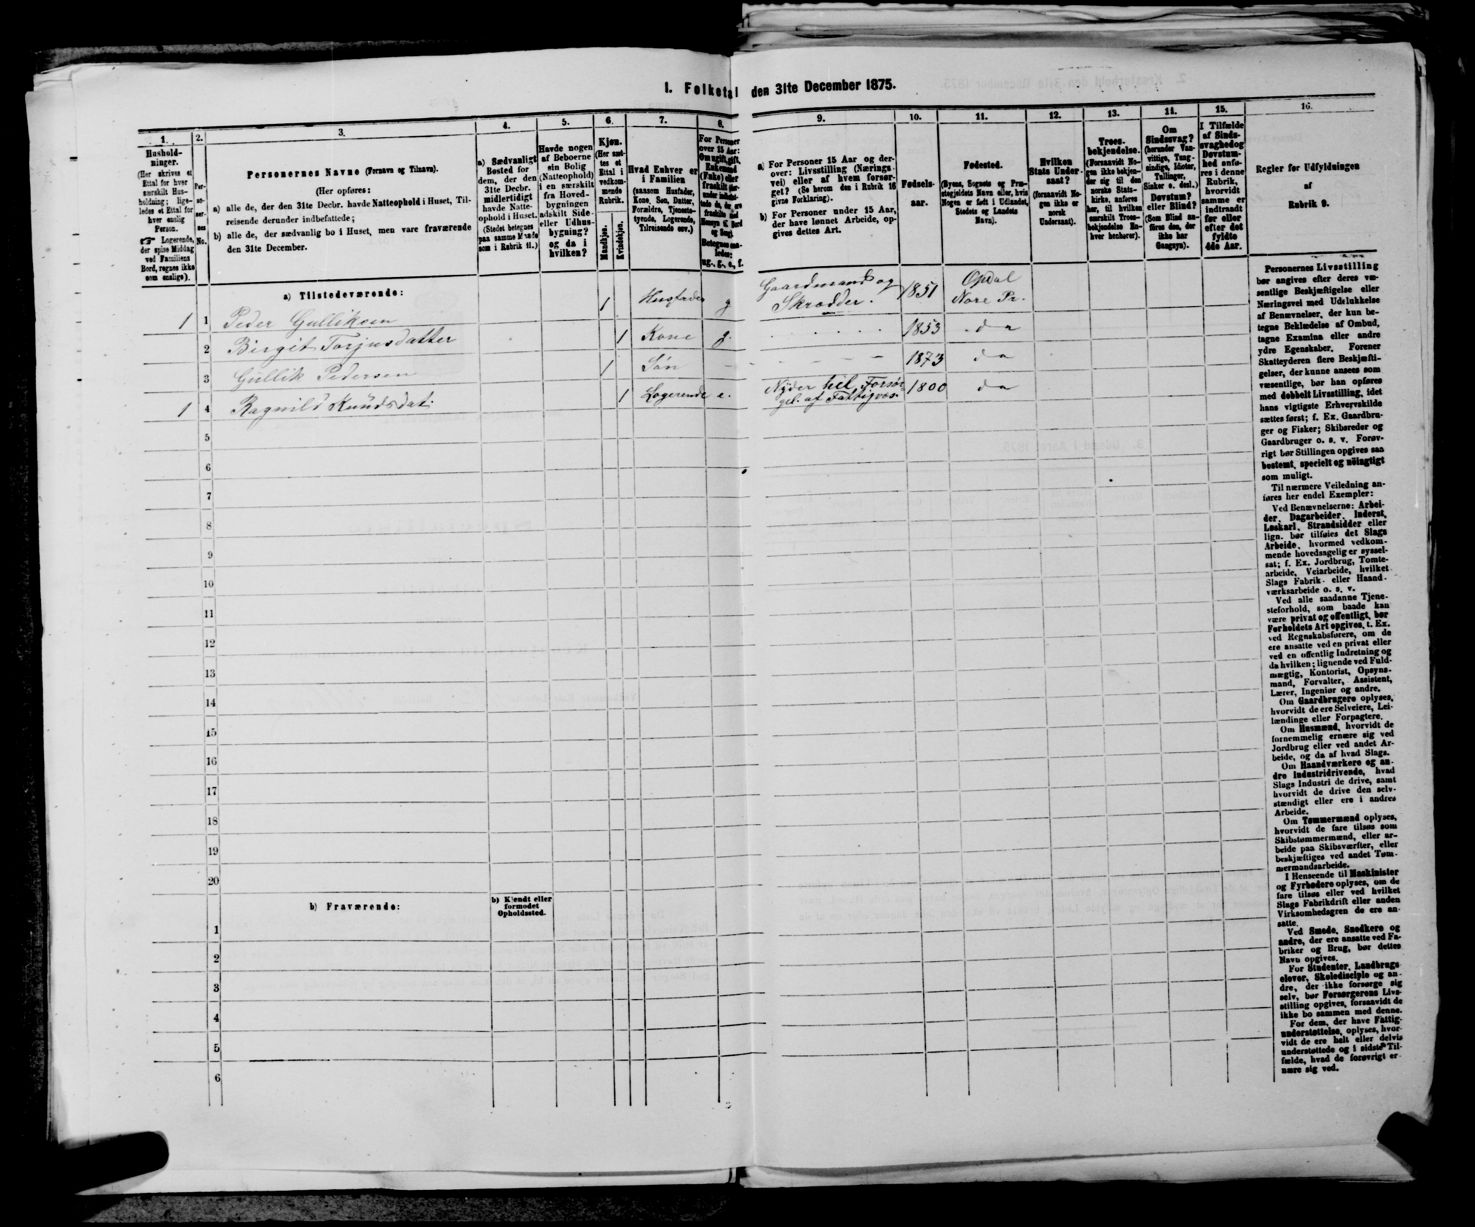 I. Folketal den 31te December 1875.
1.
Hushold-
ninger.
(Her skrives et
Ettal for hver
særskilt Hus-
holdning; lige-
ledes et Ettal for
hver enslig
Person.
☞ Logerende,
der spise Middag
ved Familiens
Bord, regnes ikke
som enslige).
2.
Per-
so-
ner-
nes
No.
3.
Personernes Navne (Fornavn og Tilnavn).
(Her opføres:
a) alle de, der den 31te Decbr. havde Natteophold i Huset, Til-
reisende derunder indbefattede;
b) alle de, der sædvanlig bo i Huset, men vare fraværende
den 31te December.
4.
a) Sædvanligt
Bosted for
dem, der den
31te Decbr.
midlertidigt
havde Natte-
ophold i Huset.
(Stedet betegnes
paa samme Maade
som i Rubrik 11.)
5.
Havde nogen
af Beboerne
sin Bolig
(Natteophold)
i en særskilt
fra Hoved-
bygningen
adskilt Side-
eller Udhus-
bygning?
og da i
hvilken?
6.
Kjøn.
(Her sæt-
tes et
Ettal i
vedkom-
mende
Rubrik.
Mandkjøn.
Kvindekjøn.
7.
Hvad Enhver er
i Familien
(saasom Husfader,
Kone, Søn, Datter,
Forældre, Tjeneste-
tyende, Logerende,
Tilreisende osv.)
8.
For Personer
over 15 Aar:
Om ugift, gift,
Enkemand
(Enke) eller
fraskilt
9.
a) For Personer 15 Aar og der-
over: Livsstilling (Nærings-
vei) eller af hvem forsør-
get? (Se herom den i Rubrik 16
givne Forklaring).
b) For Personer under 15 Aar,
der have lønnet Arbeide, op-
gives dettes Art.
10.
Fødsels-
aar.
11.
Fødested.
(Byens, Sognets og Præ-
stegjeldets Navn eller, hvis
Nogen er født i Udlandet,
Stedets og Landets
Navn).
12.
Hvilken
Stats Under-
saat?
(forsaavidt No-
gen ikke er
norsk
Undersaat).
13.
Troes-
bekjendelse.
(Forsaavidt No-
gen ikke bekjen-
der sig til den
norske Stats-
kirke, anføres
her, til hvilken
særskilt Troes-
bekjendelse En-
hver henhører).
14.
Om
Sindssvag?
(herunder Van-
vittige, Tung-
sindige, Idioter,
Tullinger,
Sinker o. desl.)
Døvstum?
eller Blind?
(Som Blind an-
føres den, der
ikke har
Gangsyn).
15.
I Tilfælde
af Sinds-
svaghed og
Døvstum-
hed anfø-
res i denne
Rubrik,
hvorvidt
samme er
indtraadt
før eller
efter det
fyldte
4de Aar.
16.
Regler for Udfyldningen
af
Rubrik 9.
a) Tilstedeværende:
1 1 Peder Gulliksen 1 Husfader g Gaardmand og Skrædder. 1851 Opdal Nore Pr.
2 Birgit Torjusdatter 1 Kone g. 1853 do
3 Gullik Pedersen 1 Søn 1873 do
1 4 Ragnild Knudsdat: 1 Logerende e. Nyder hel Forsør- gel. af Fattigvæs. 1800 do
5
6
7
8
9
10
11
12
13
14
15
16
17
18
19
20
b) Fraværende:
b) Kjendt eller
formodet
Opholdssted.
1
2
3
4
5
6
Personernes Livsstilling
bør angives efter deres væ-
sentlige Beskjæftigelse eller
Næringsvei med Udelukkelse
af Benævnelser, der kun be-
tegne Beklædelse af Ombud,
tagne Examina eller andre
ydre Egenskaber. Forener
Skatteyderen flere Beskjæfti-
gelser, der kunne ansees som
væsentlige, bør han opføres
med dobbelt Livsstilling, idet
hans vigtigste Erhvervskilde
sættes først; f. Ex. Gaardbru-
ger og Fisker; Skibsreder og
Gaardbruger o. s. v. Forøv-
rigt bør Stillingen opgives saa
bestemt, specielt og nöiagtigt
som muligt.
Til nærmere Veiledning an-
føres her endel Exempler:
Ved Benævnelserne: Arbei-
der, Dagarbeider, Inderst,
Løskarl, Strandsidder eller
lign. bør tilføies det Slags
Arbeide, hvormed vedkom-
mende hovedsagelig er syssel-
sat; f. Ex. Jordbrug, Tomte-
arbeide, Veiarbeide, hvilket
Slags Fabrik- eller Haand-
værksarbeide o. s. v.
Ved alle saadanne Tjene-
steforhold, som baade kan
være privat og offentligt, bør
Forholdets Art opgives, t. Ex.
ved Regnskabsførere, om de
ere ansatte ved en privat eller
ved en offentlig Indretning og
da hvilken; lignende ved Fuld-
mægtig, Kontorist, Opsyns-
mand, Forvalter, Assistent,
Lærer, Ingeniør og andre.
Om Gaardbrugere oplyses,
hvorvidt de ere Selveiere, Lei-
lændinge eller Forpagtere.
Om Husmænd, hvorvidt de
fornemmelig ernære sig ved
Jordbrug eller ved andet Ar-
beide, og da af hvad Slags.
Om Haandværkere og an-
dre Industridrivende, hvad
Slags Industri de drive, samt
hvorvidt de drive den selv-
stændigt eller ere i andres
Arbeide.
Om Tømmermænd oplyses,
hvorvidt de fare tilsøs som
Skibstømmermænd, eller ar-
beide paa Skibsværfter, eller
beskjæftiges ved andet Tøm-
mermandsarbeide.
I Henseende til Maskinister
og Fyrbødere oplyses, om de
fare tilsøs eller ved hvilket
Slags Fabrikdrift eller anden
Virksomhedsgren de ere an-
satte.
Ved Smede, Snedkere og
andre, der ere ansatte ved Fa-
briker og Brug, bør dettes
Navn opgives.
For Studenter, Landbrugs
elever, Skoledisciple og an-
dre, der ikke forsørge sig
selv, bør Forsørgerens Livs-
stilling opgives, forsaavidt de
ikke bo sammen med denne.
For dem, der have Fattig-
understøttelse, oplyses, hvor-
vidt de ere helt eller delvis
understøttede og i sidste Til-
fælde, hvad de forøvrigt er-
nære sig ved.